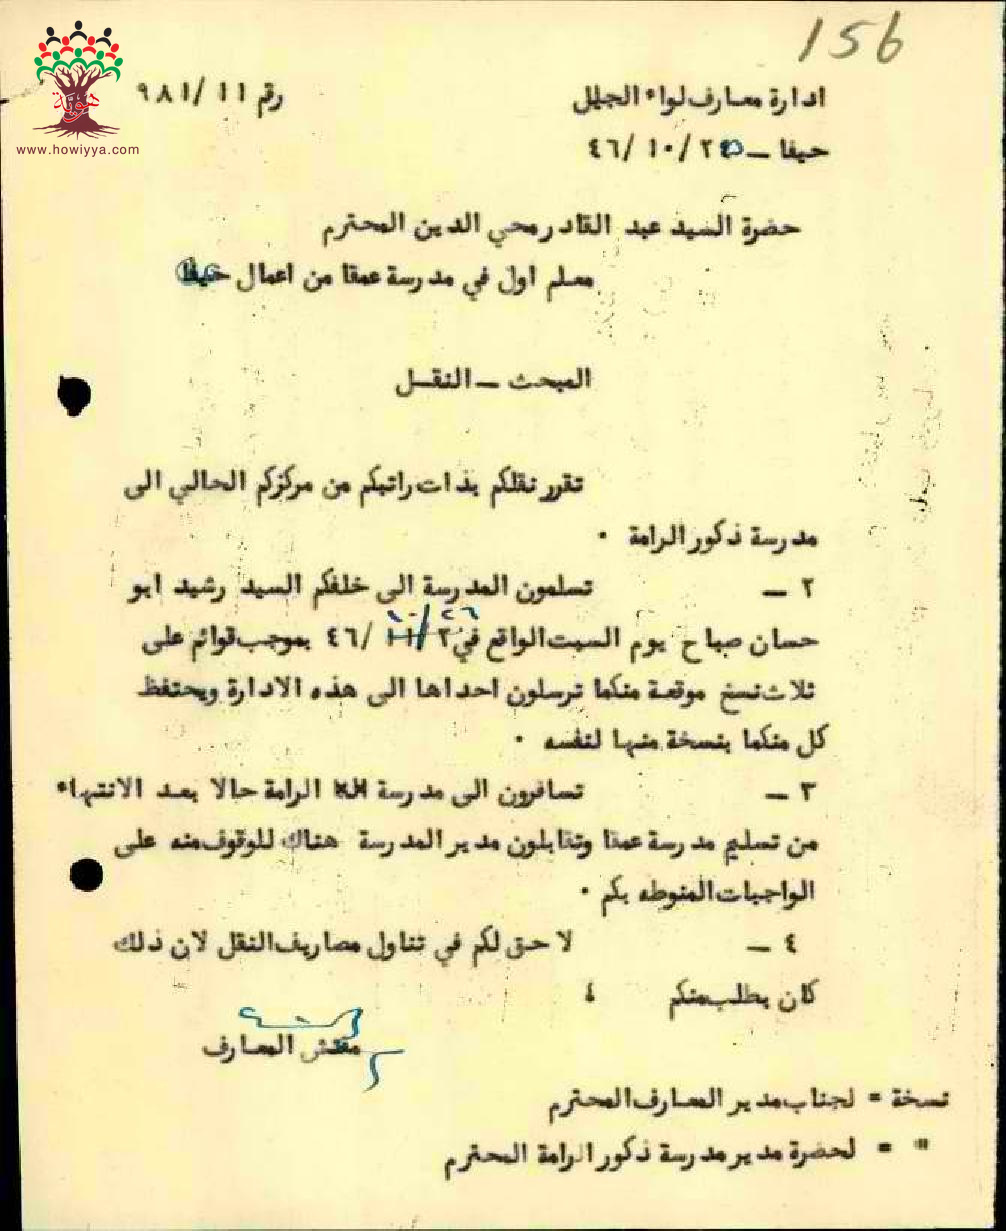 156
هوية
www.howiyya.com
ادارة معارف لواء الجليل رقم ١١ /٩٨١
حيفا – /١٠/ ٤٦
حضرة السيد عبد القادر محي الدين المحترم
معلم اول في مدرسة عمقا من اعمال
المبحث – النقـل
تقرر نقلكم بذات راتبكم من مركزكم الحالي الى
مدرسة ذكور الرامة .
٢ – تسلمون المدرسة الى خلفكم السيد رشيد ابو
حسان صباح يوم السبت الواقع في ٢٦/١٠ /٤٦ بموجب قوائم على
ثلاث نسخ موقعة منكما ترسلون احداها الى هذه الادارة ويحتفظ
كل منكما بنسخة منها لنفسه .
٣ – تسافرون الى مدرسة الرامة حالا بعد الانتهاء
من تسليم مدرسة عمقا وتقابلون مدير المدرسة هناك للوقوف منه على
الواجبات المنوطه بكم .
٤ – لا حق لكم في تناول مصاريف النقل لان ذلك
كان بطلب منكم ٤
مفتش المعارف
نسخة = لجناب مدير المعارف المحترم
" = لحضرة مدير مدرسة ذكور الرامة المحترم